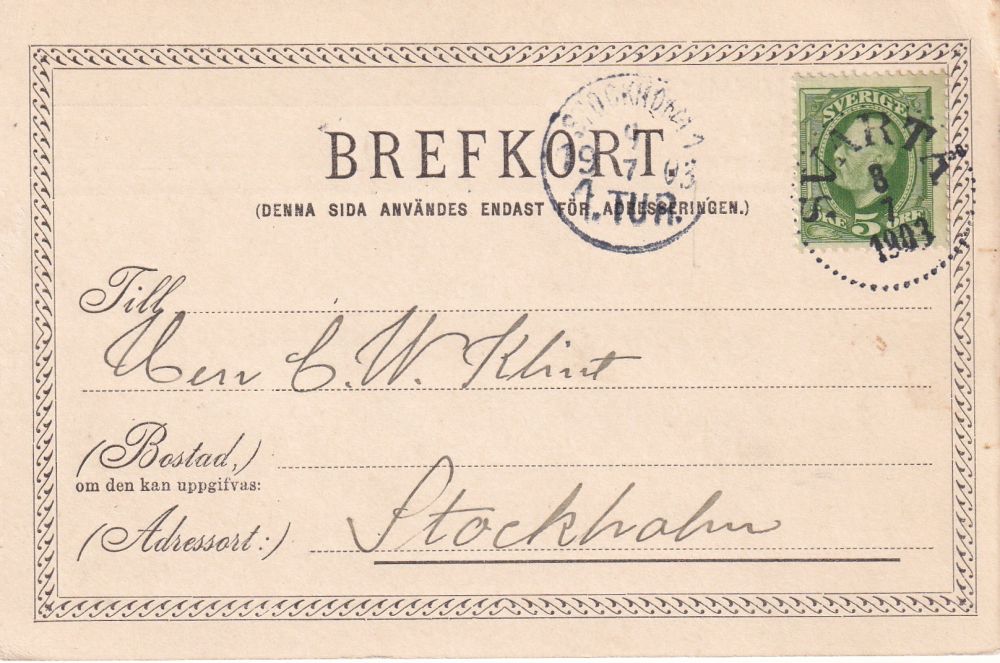 BREFKORT
(DENNA SIDA ANVÄNDES ENDAST FÖR ADRESSERINGEN.)
STOCKHOLM
9
19 7 03
1.TUR.
SVERIGE
5 ÖRE
SVARTÅ
8
7
1903
Till
Herr C. W. Klint
(Bostad,)
om den kan uppgifvas:
(Adressort:)
Stockholm